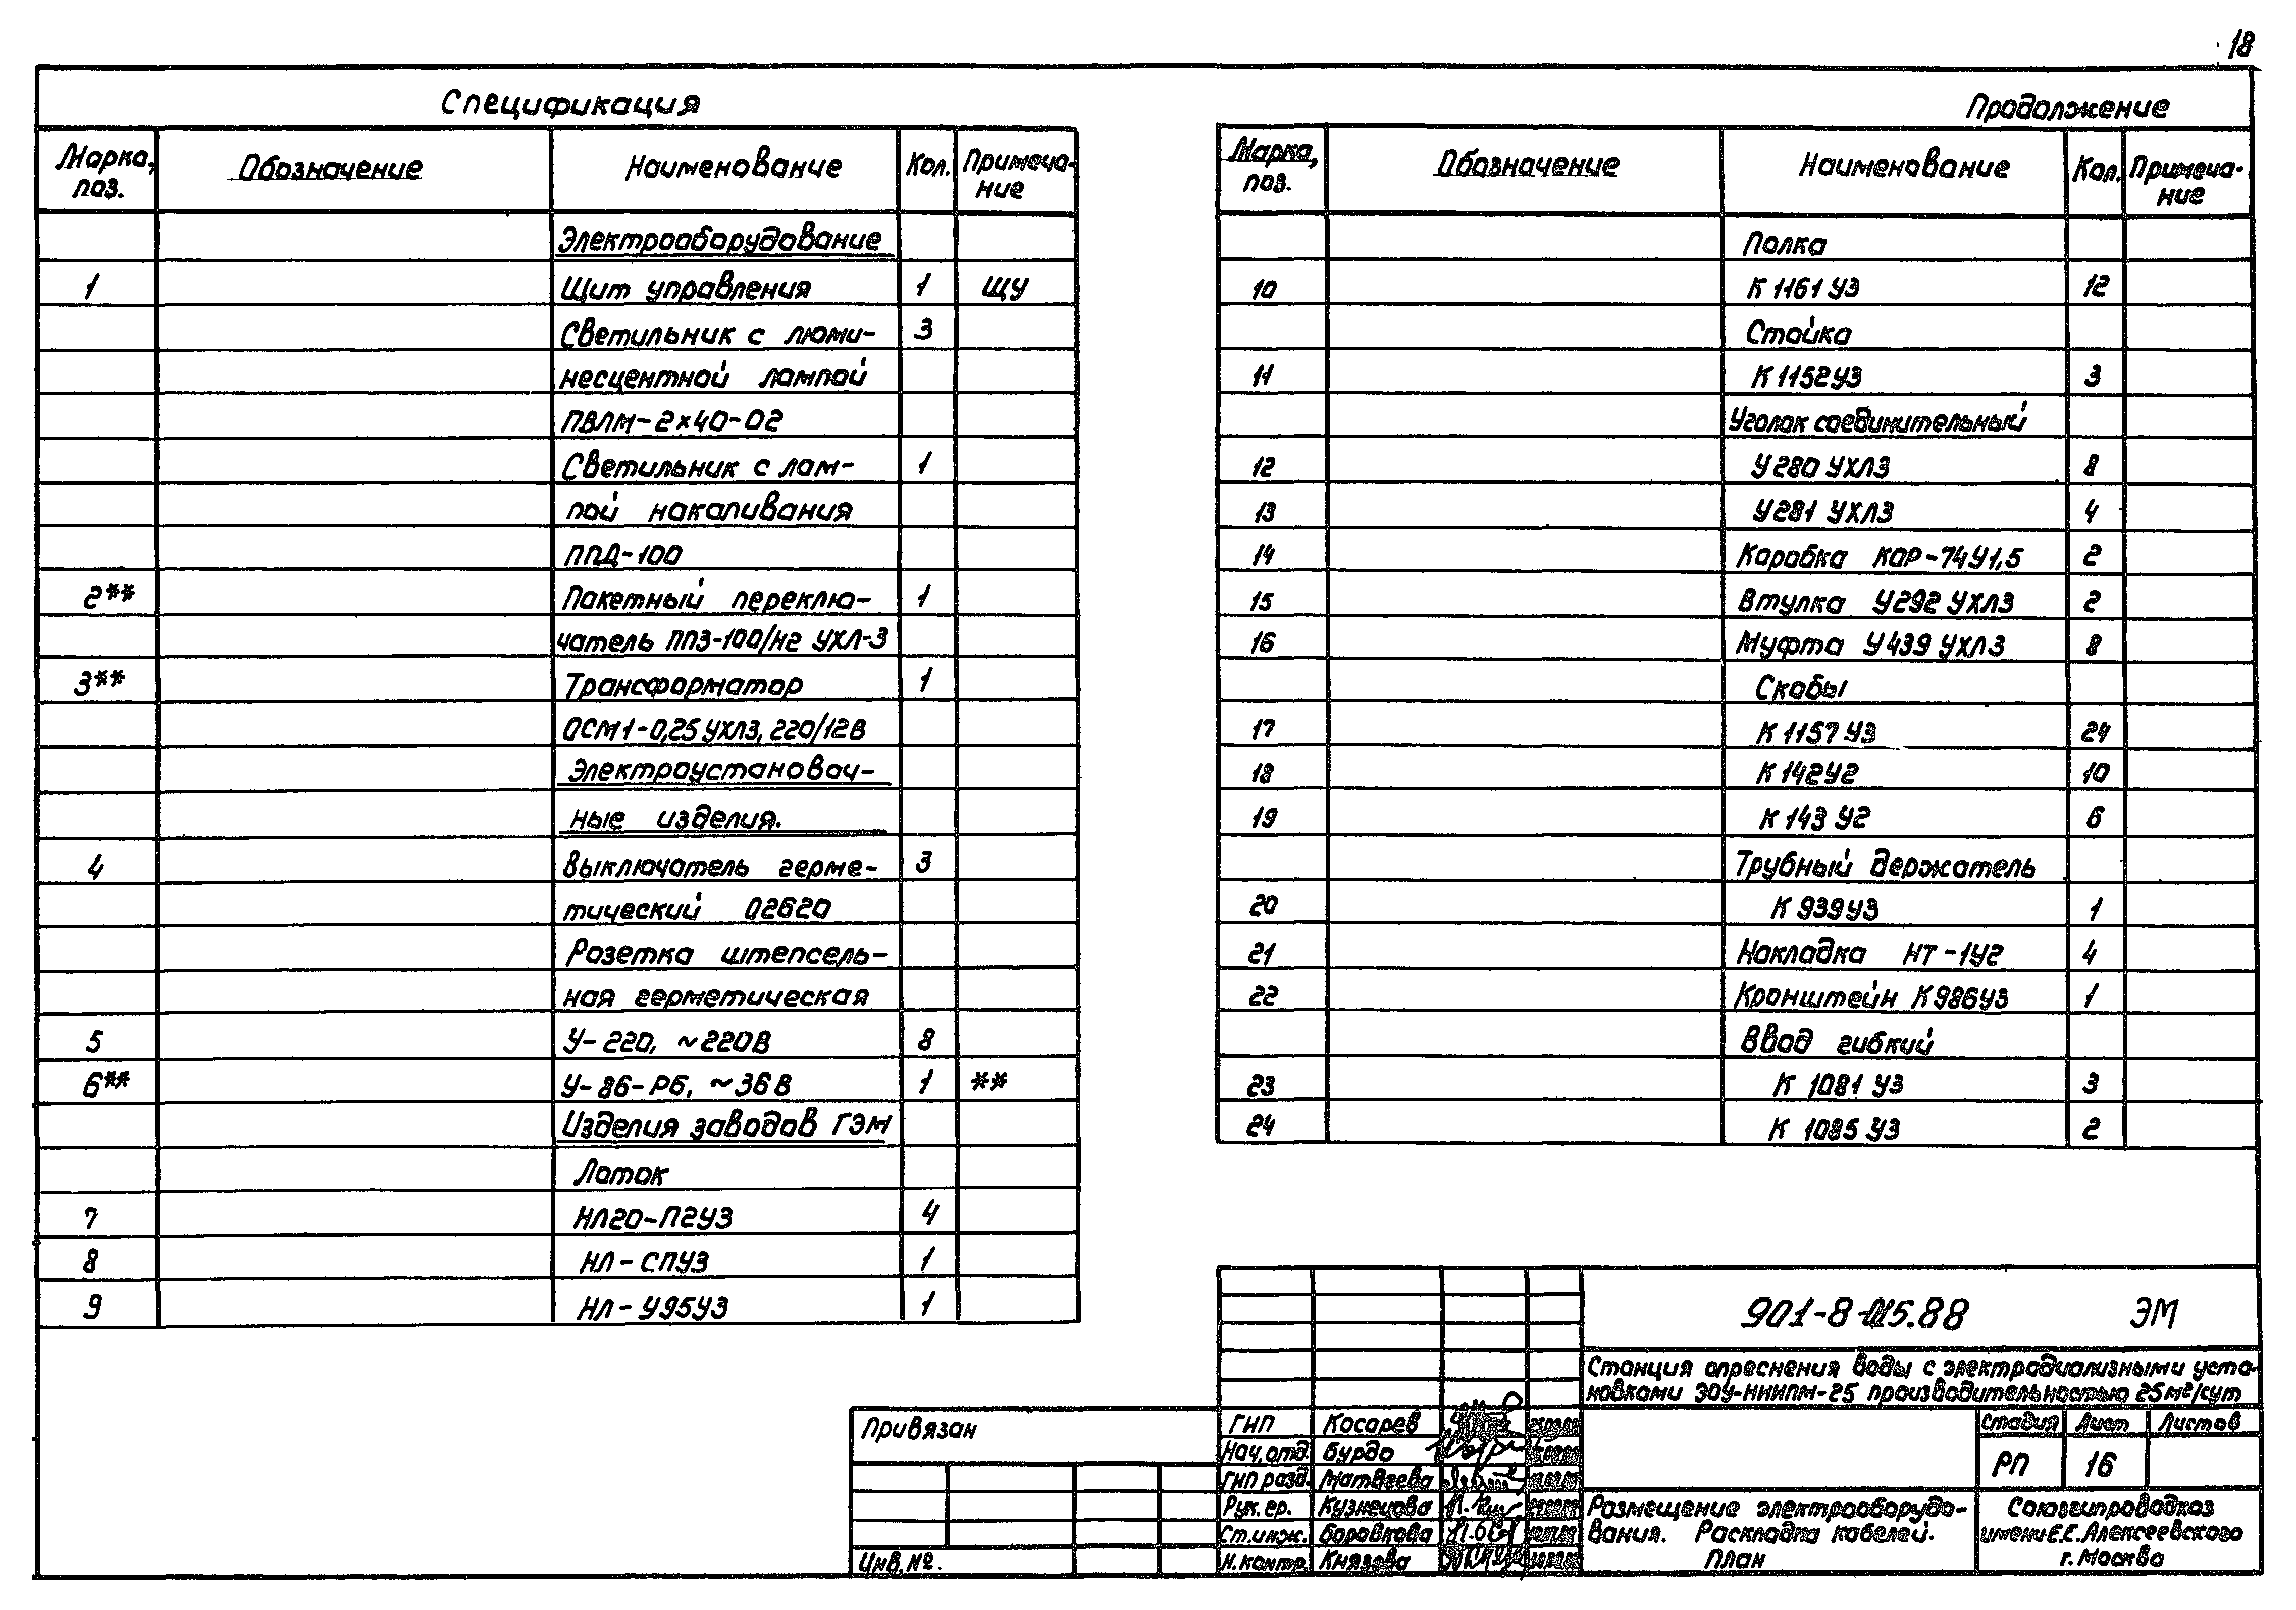 18
Спецификация
Марка, поз. Обозначение Наименование Кол. Примеча-ние
Электрооборудование
1 Щит управления 1 ЩУ
Светильник с люми- 3
несцентной лампой
ПВЛМ-2×40-02
Светильник с лам- 1
пой накаливания
ППД-100
2** Пакетный переклю- 1
чатель ПП3-100/Н2 УХЛ-3
3** Трансформатор 1
ОСМ1-0,25 УХЛ3, 220/12В
Электроустановоч-
ные изделия.
4 Выключатель герме- 3
тический 02620
Розетка штепсель-
ная герметическая
5 У-220, ~220В 8
6** У-86-РБ, ~36В 1 **
Изделия заводов ГЭМ
Лоток
7 НЛ20-П2У3 4
8 НЛ-СПУ3 1
9 НЛ-У95У3 1
Продолжение
Марка, поз. Обозначение Наименование Кол. Примеча-ние
Полка
10 К 1161 У3 12
Стойка
11 К 1152У3 3
Уголок соединительный
12 У280 УХЛ3 8
13 У281 УХЛ3 4
14 Коробка КОР-74У1,5 2
15 Втулка У292 УХЛ3 2
16 Муфта У439 УХЛ3 8
Скобы
17 К 1157 У3 24
18 К 142У2 10
19 К 143 У2 6
Трубный держатель
20 К 939У3 1
21 Накладка НТ-1У2 4
22 Кронштейн К986У3 1
Ввод гибкий
23 К 1081 У3 3
24 К 1085 У3 2
901-8-15.88 ЭМ
Станция опреснения воды с электродиализными уста-
новками ЭОУ-НИИПМ-25 производительностью 25м³/сут
Привязан
Инв.№.
ГИП Косарев
Нач.отд. Бурдо
ГИП разд. Матвеева
Рук.гр. Кузнецова
Ст.инж. Боровкова
Н.контр. Князева
Стадия Лист Листов
РП 16
Размещение электрооборудо-
вания. Раскладка кабелей.
План
Союзгипроводхоз
имени Е.Е.Алексеевского
г.Москва